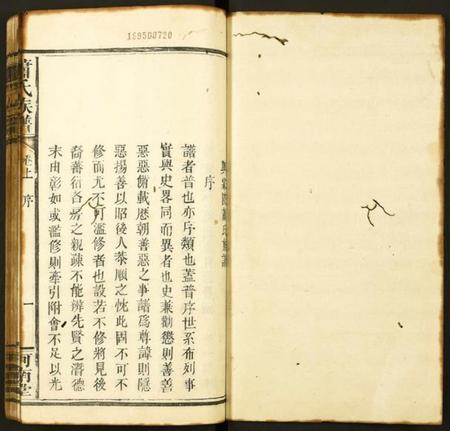 1395D0720
序
譜者普也亦序類也蓋普序世系布列事
實與史畧同而異者也史兼勸懲則善善
惡惡備載歷朝善惡之事譜爲尊諱則隱
惡揚善以昭後人恭順之忱此固不可不
修而尤不可濫修者也設若不修將見後
裔蕃衍各房之親疎不能辨先賢之潛德
末由彰如或濫修則牽引附會不足以光
氏族譜
卷上
序
一
河南堂